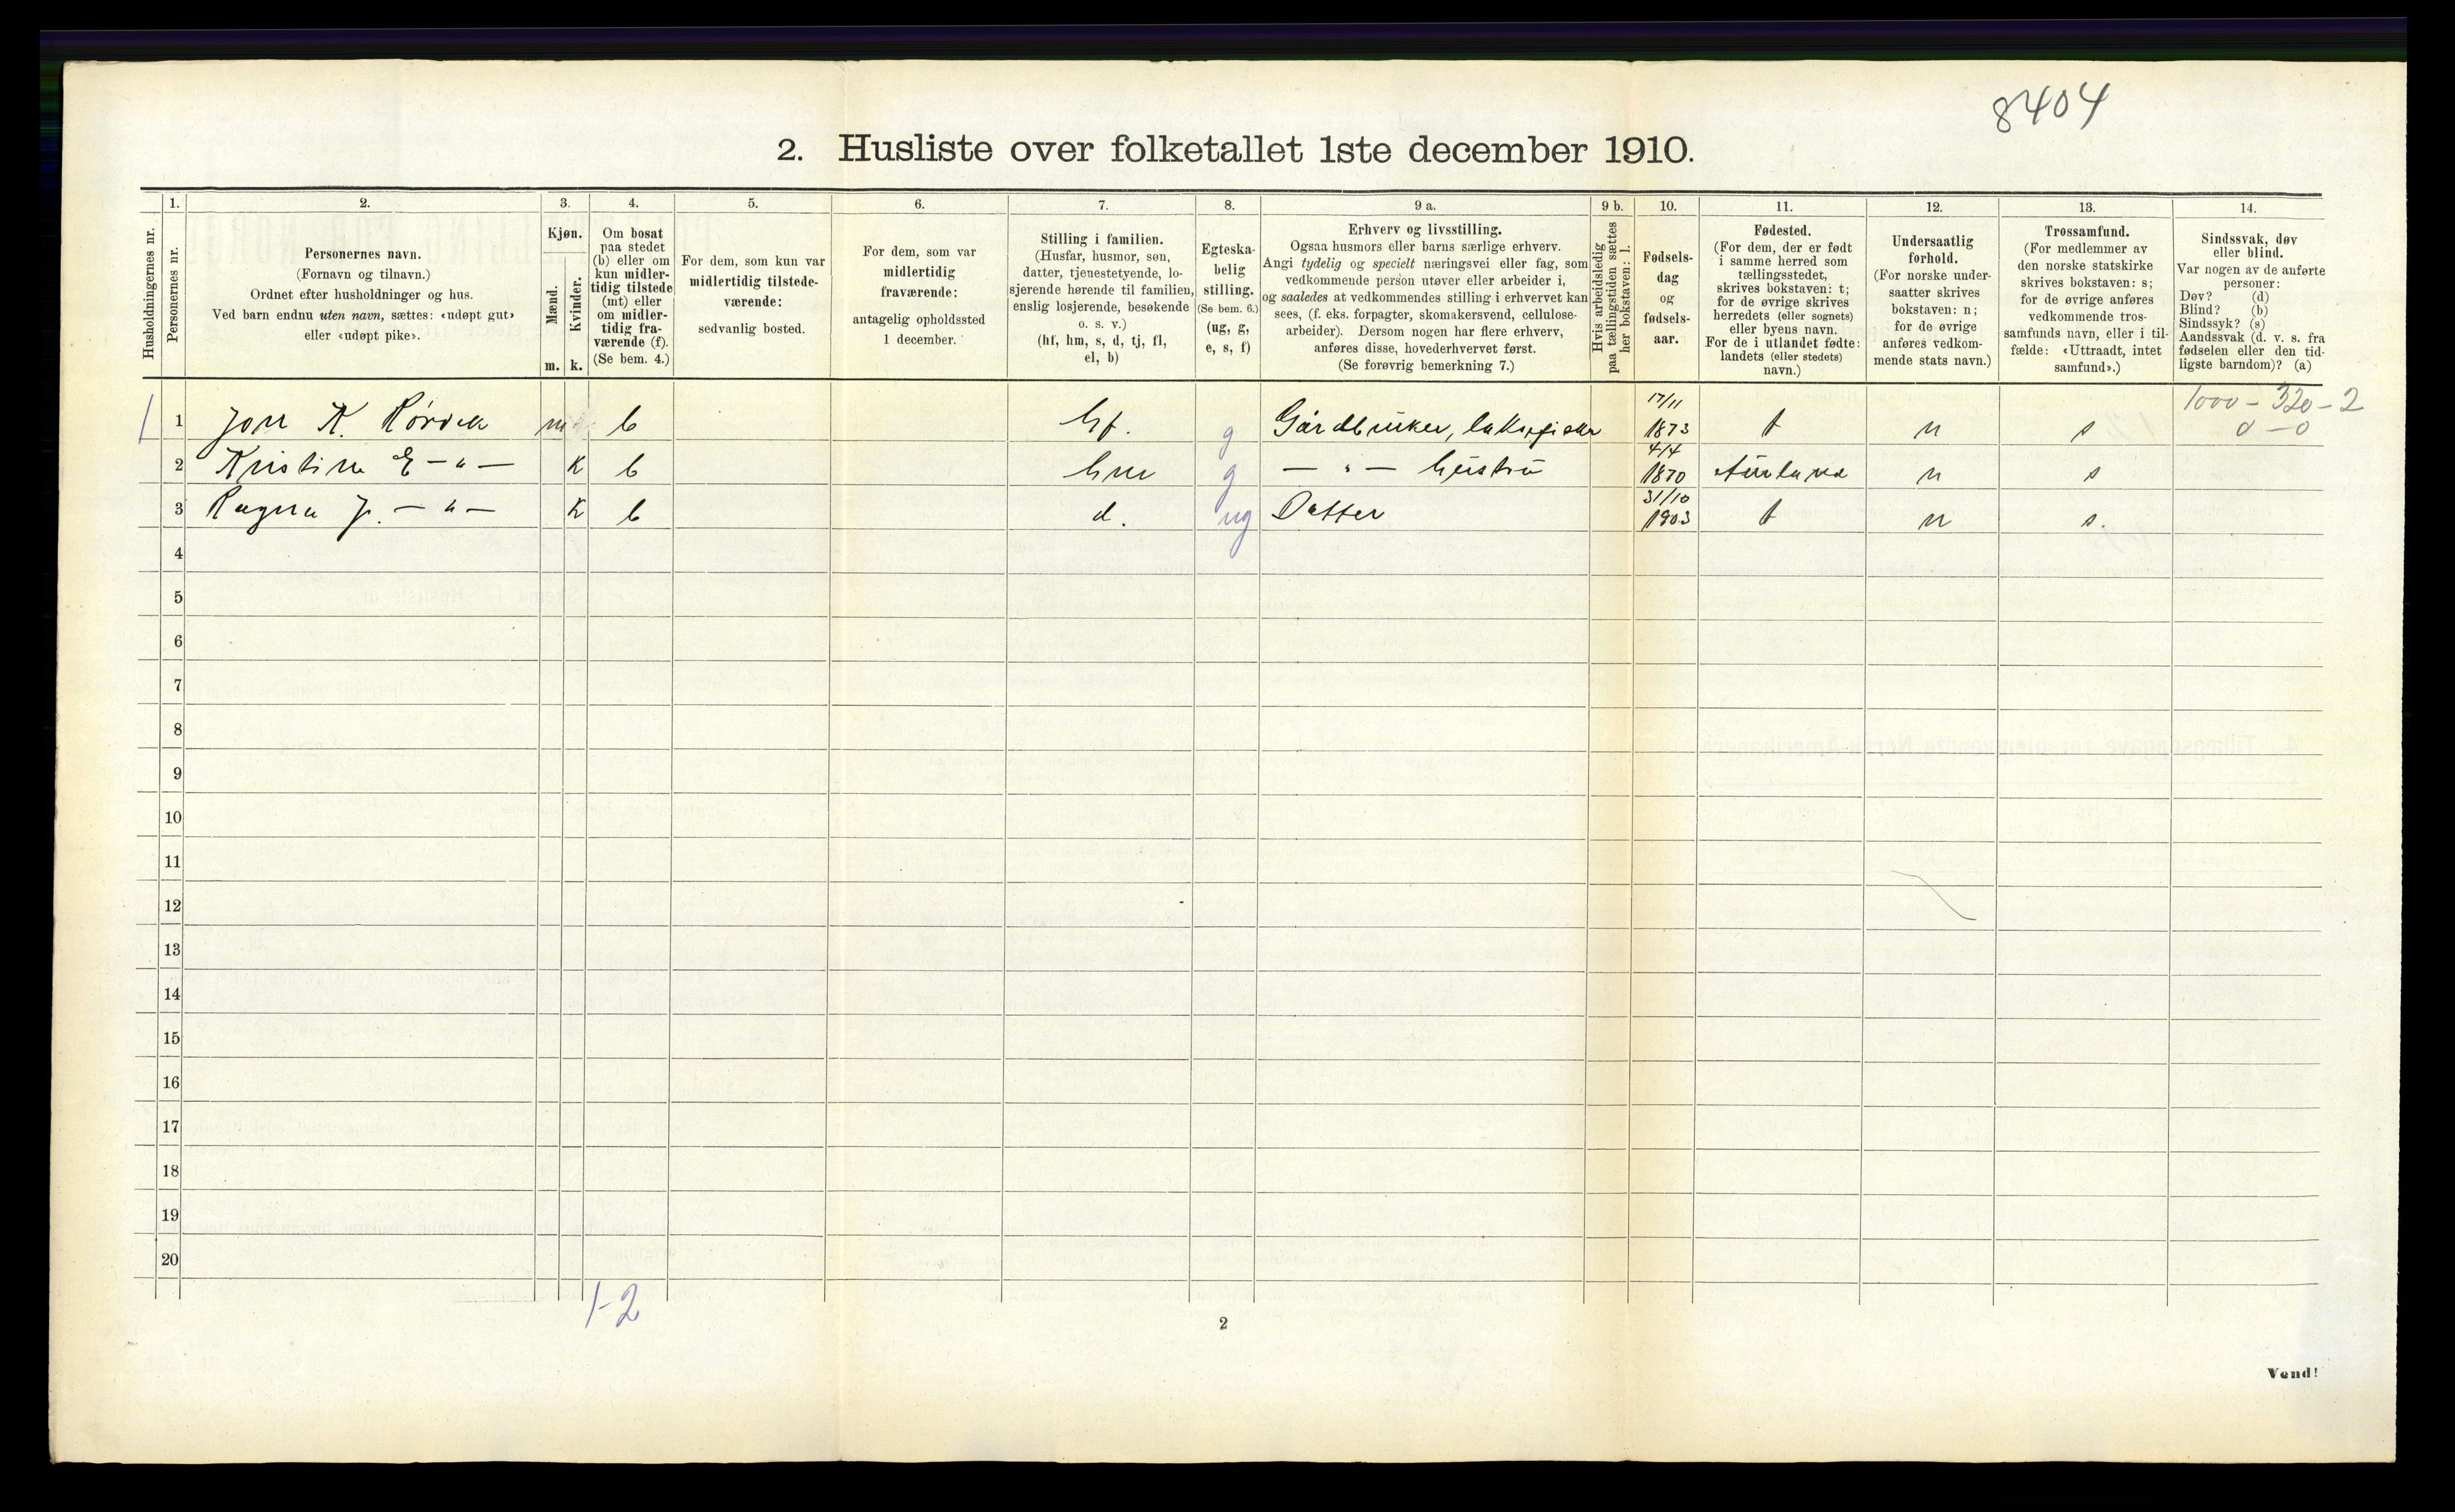 8404
2. Husliste over folketallet 1ste december 1910.
Husholdningernes nr.
1.
Personernes nr.
2.
Personernes navn.
(Fornavn og tilnavn.)
Ordnet efter husholdninger og hus.
Ved barn endnu uten navn, sættes: «udøpt gut»
eller «udøpt pike».
3.
Kjøn.
Mænd.
Kvinder.
m. k.
4.
Om bosat
paa stedet
(b) eller om
kun midler-
tidig tilstede
(mt) eller
om midler-
tidig fra-
værende (f).
(Se bem. 4.)
5.
For dem, som kun var
midlertidig tilstede-
værende:
sedvanlig bosted.
6.
For dem, som var
midlertidig
fraværende:
antagelig opholdssted
1 december.
7.
Stilling i familien.
(Husfar, husmor, søn,
datter, tjenestetyende, lo-
sjerende hørende til familien,
enslig losjerende, besøkende
o. s. v.)
(hf, hm, s, d, tj, fl,
el, b)
8.
Egteska-
belig
stilling.
(Se bem. 6.)
(ug, g,
e, s, f)
9 a.
Erhverv og livsstilling.
Ogsaa husmors eller barns særlige erhverv.
Angi tydelig og specielt næringsvei eller fag, som
vedkommende person utøver eller arbeider i,
og saaledes at vedkommendes stilling i erhvervet kan
sees, (f. eks. forpagter, skomakersvend, cellulose-
arbeider). Dersom nogen har flere erhverv,
anføres disse, hovederhvervet først.
(Se forøvrig bemerkning 7.)
9 b.
Hvis arbeidsledig
paa tællingstiden sættes
her bokstaven: l.
10.
Fødsels-
dag
og
fødsels-
aar.
11.
Fødested.
(For dem, der er født
i samme herred som
tællingsstedet,
skrives bokstaven: t;
for de øvrige skrives
herredets (eller sognets)
eller byens navn.
For de i utlandet fødte:
landets (eller stedets)
navn.)
12.
Undersaatlig
forhold.
(For norske under-
saatter skrives
bokstaven: n;
for de øvrige
anføres vedkom-
mende stats navn.)
13.
Trossamfund.
(For medlemmer av
den norske statskirke
skrives bokstaven: s;
for de øvrige anføres
vedkommende tros-
samfunds navn, eller i til-
fælde: «Uttraadt, intet
samfund».)
14.
Sindssvak, døv
eller blind.
Var nogen av de anførte
personer:
Døv? (d)
Blind? (b)
Sindssyk? (s)
Aandssvak (d. v. s. fra
fødselen eller den tid-
ligste barndom)? (a)
1000 - 320 - 2
0 - 0
1 1 Jon K. Rørvik m b hf. g Gårdbruker, laksefisker 17/11 1873 t n s
2 Kristine E — " — K b hm g — " — hustru 4/4 1870 Aurland n s
3 Ragna J. — " — K b d. ug Datter 31/10 1903 t n s.
4
5
6
7
8
9
10
11
12
13
14
15
16
17
18
19
20
1-2
2
Vend!